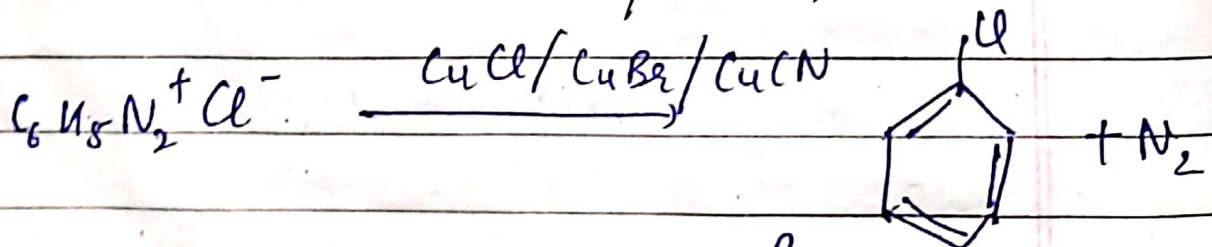 C₆H₅N₂⁺Cl⁻ CuCl/CuBr/CuCN Cl + N₂